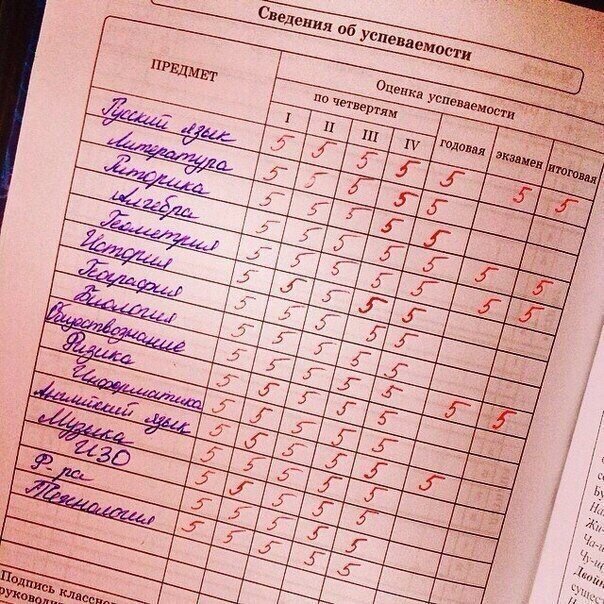 Сведения об успеваемости
ПРЕДМЕТ
Оценка успеваемости
по четвертям
I II III IV годовая экзамен итоговая
Русский язык 5 5 5 5 5 5 5
Литература 5 5 5 5 5
Риторика 5 5 5 5 5
Алгебра 5 5 5 5 5 5 5
Геометрия 5 5 5 5 5 5 5
История 5 5 5 5 5
География 5 5 5 5 5
Биология 5 5 5 5 5
Обществознание 5 5 5 5 5 5 5
Физика 5 5 5 5 5
Информатика 5 5 5 5 5
Английский язык 5 5 5 5 5 5
Музыка 5 5 5 5 5
ИЗО 5 5 5 5 5
Ф-ра 5 5 5 5 5
Технология 5 5 5 5 5
Подпись классн
руководи
Бу
На
Жи-
Ча-
Чу-щ
Двой
сущес